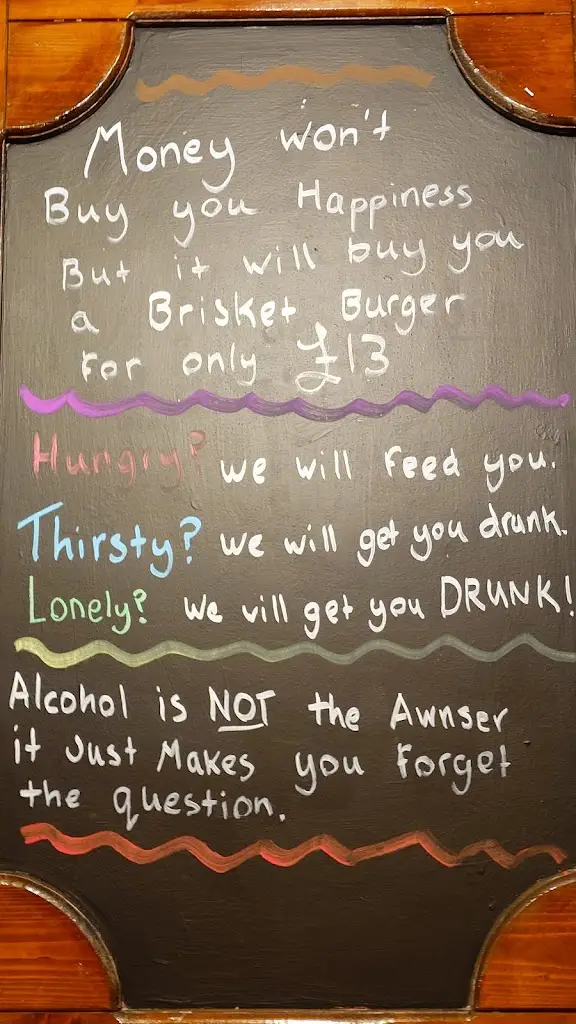 Money won't
Buy you Happiness
But it will buy you
a Brisket Burger
For only £13
Hungry? we will Feed you.
Thirsty? we will get you drunk.
Lonely? we will get you DRUNK!
Alcohol is NOT the Awnser
it Just Makes you Forget
the question.